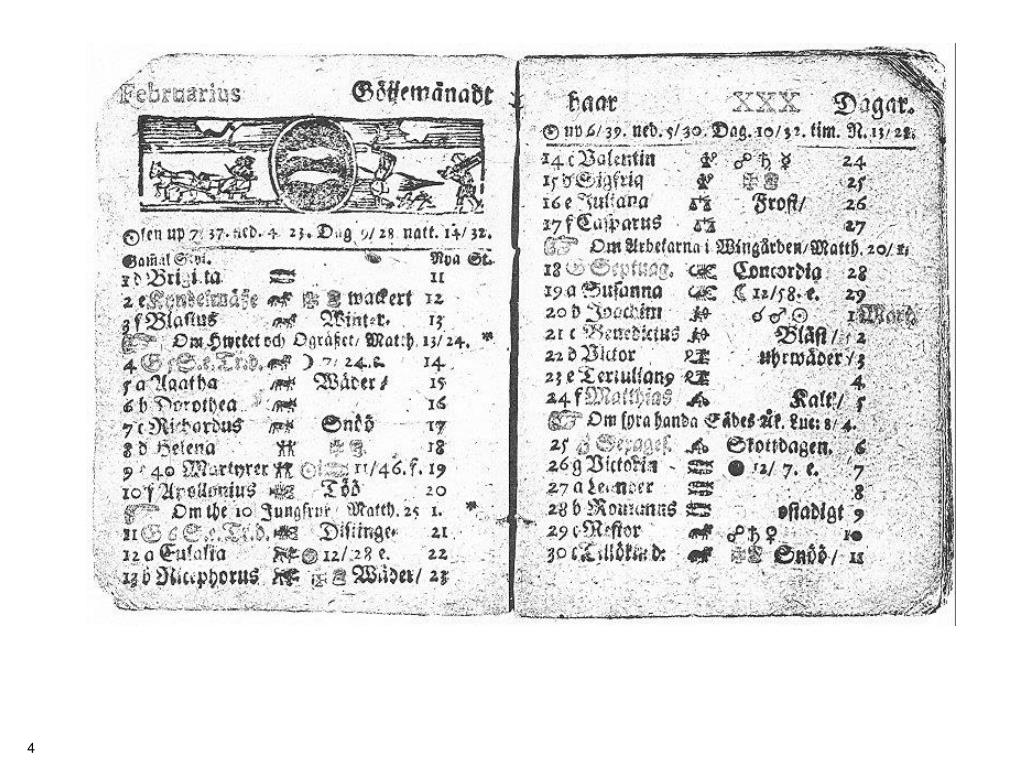 Februarius Göjemånadt
Solen up 7/37. ned. 4/23. Dag 9/28 natt. 14/32.
Gamal Styl. Nya St.
1 d Brigitta 11
2 e Kyndelmässe wackert 12
3 f Blasius Winter. 13
Om Hwetet och Ogräset/ Matth. 13/24. *
4 G 5 S. e. Tr.d. ☽ 7/24. 14
5 a Agatha Wäder/ 15
6 b Dorothea 16
7 c Richardus Snöö 17
8 d Helena 18
9 e 40 Martyrer 11/46. f. 19
10 f Apollonius Töö 20
Om the 10 Jungfrur Matth. 25 1. *
11 G 6 S. e. Tr.d. Distinge 21
12 a Eulalia 12/28 e. 22
13 b Nicephorus Wäder/ 23
haar XXX Dagar.
☉ up 6/39. ned. 5/30. Dag. 10/32. tim. N. 13/28.
14 c Valentin ☍ ♄ ☿ 24
15 d Sigfrid 25
16 e Juliana Frost/ 26
17 f Casparus 27
Om Arbetarna i Wingården/Matth. 20/1.
18 G Septuag. Concordia 28
19 a Susanna ☾ 12/58. e. 29
20 b Joachim ☌ ♂ ☉ 1 Mart.
21 c Benedictus Bläst/ 2
22 d Victor uhrwäder/ 3
23 e Tertullan9 4
24 f Matthias Kalt/ 5
Om fyra handa Sädes Åk. Luc: 8/4.
25 G Sexages. Skottdagen. 6
26 g Victorin ● 12/ 7. e. 7
27 a Leander 8
28 b Romanus ostadigt 9
29 c Nestor ☍ ♄ ♀ 10
30 Tillökn.d. Snöö/ 11
4